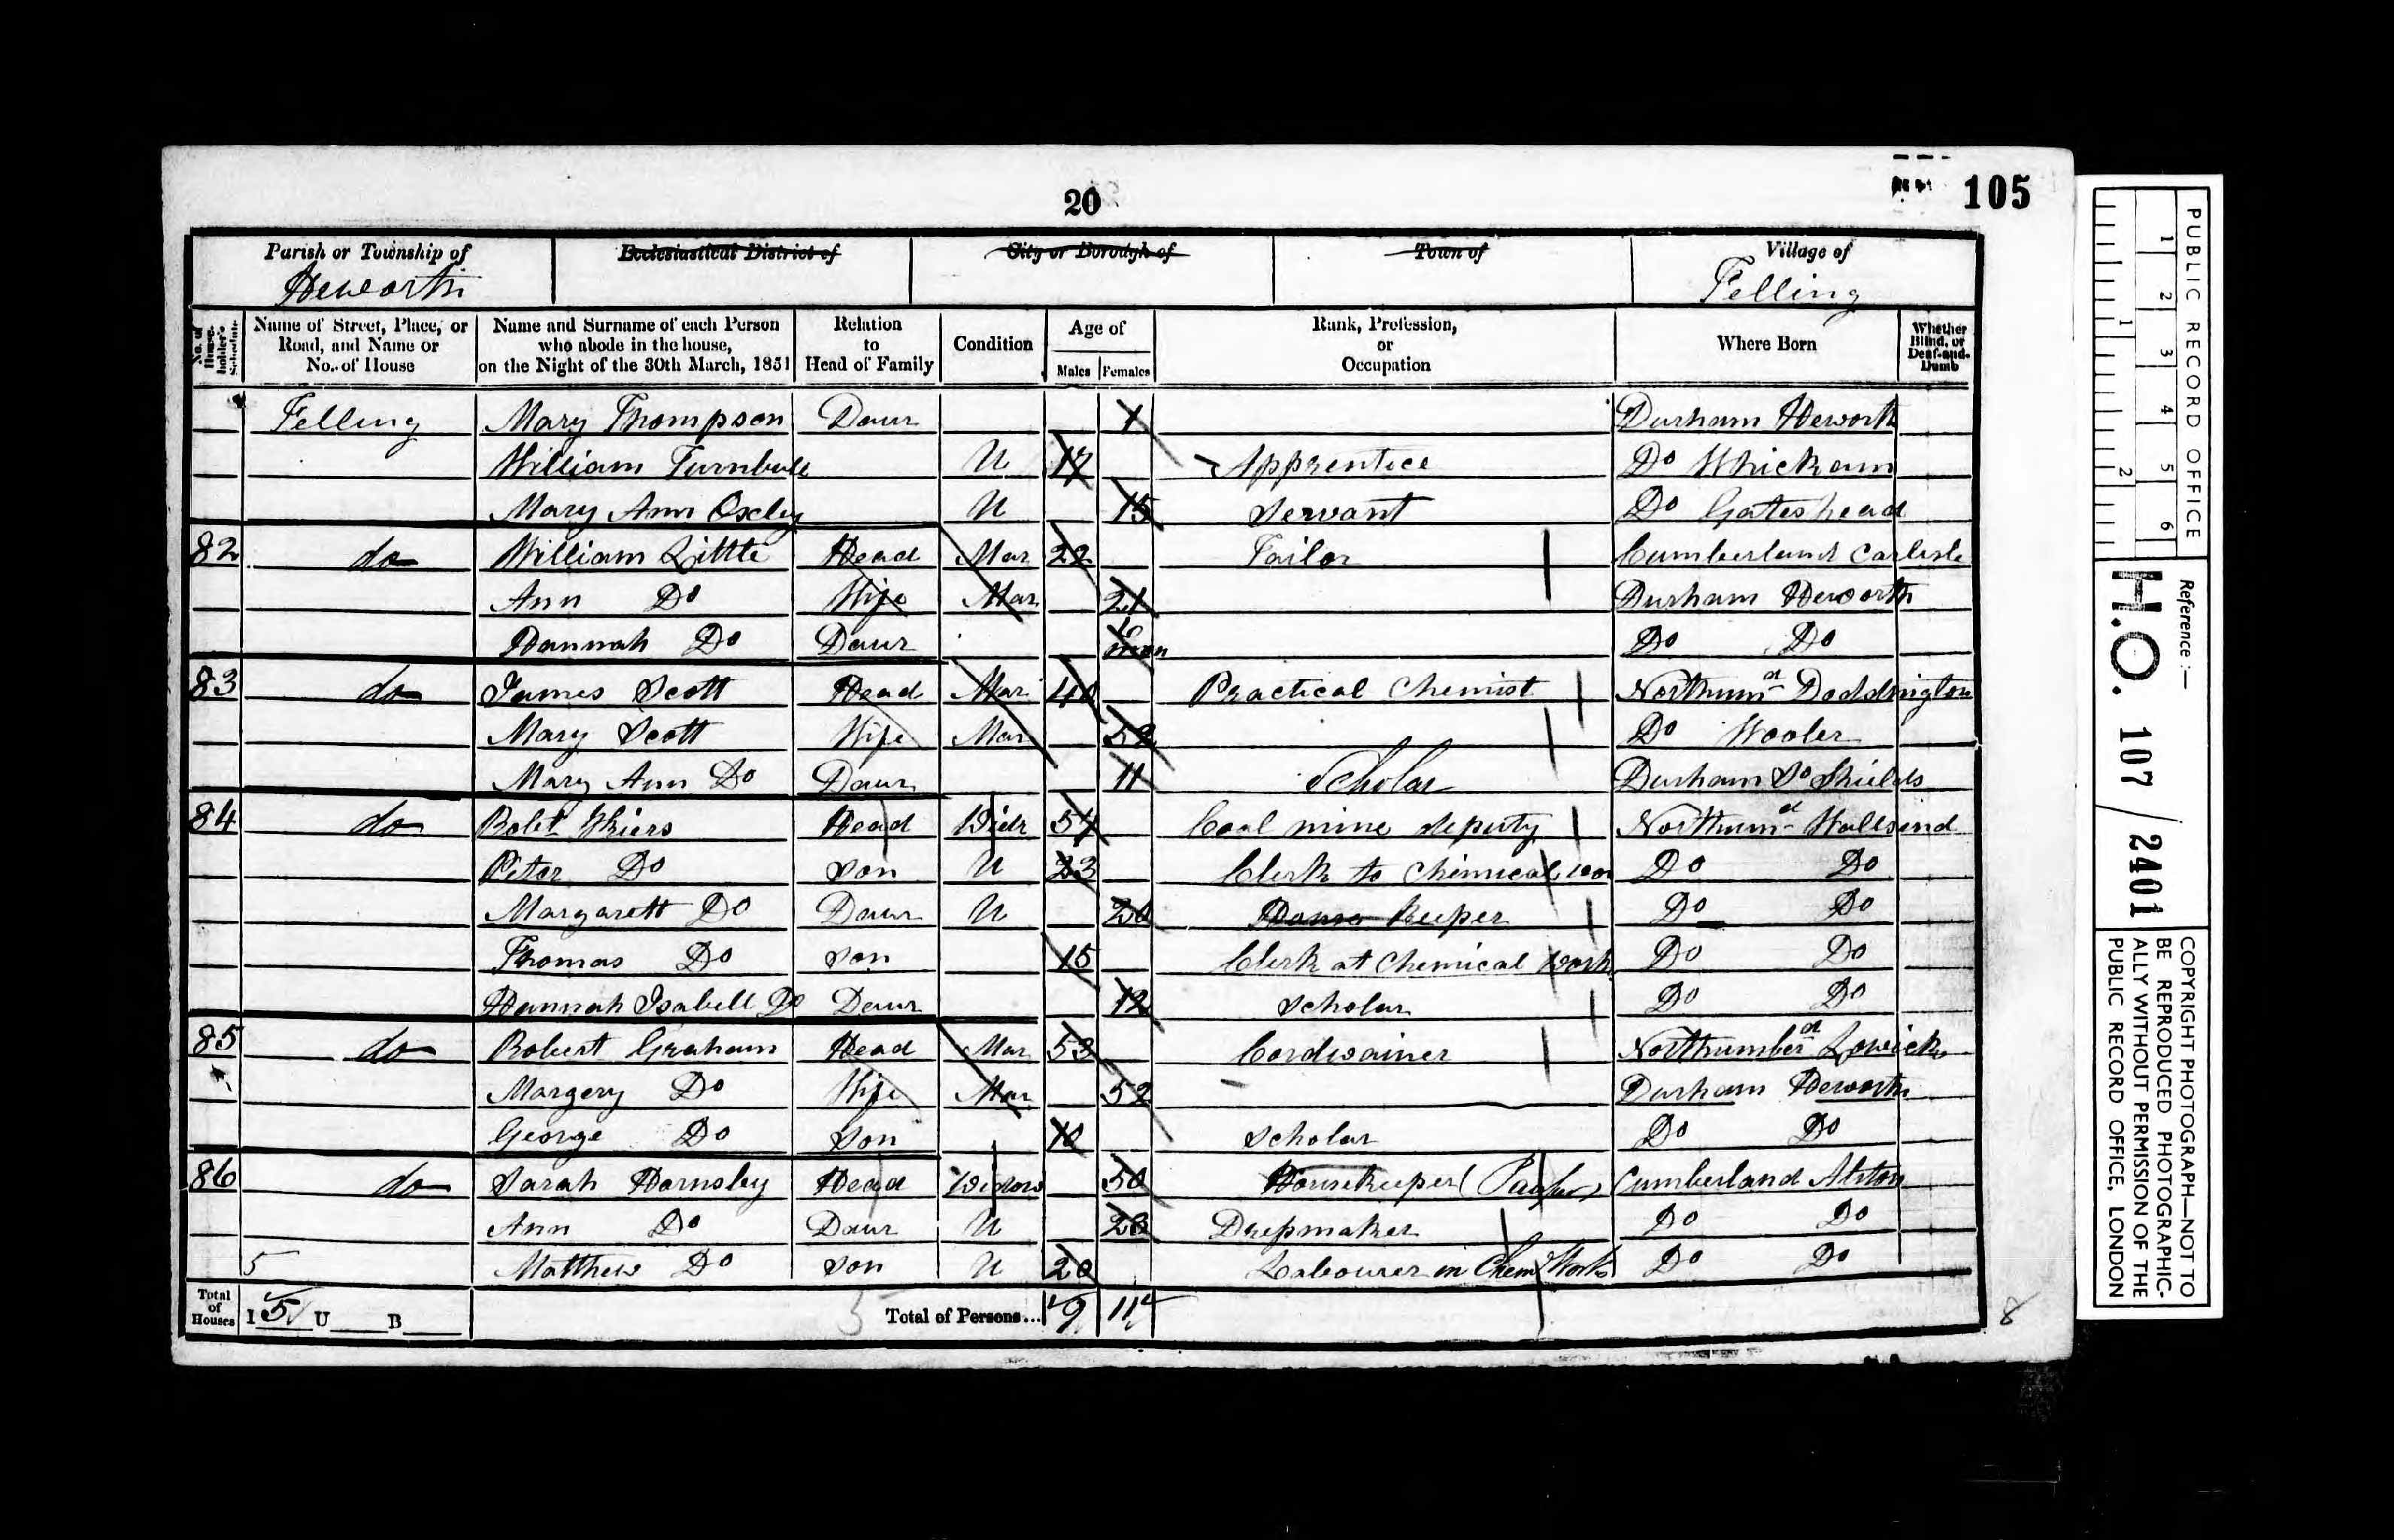 20
105
Parish or Township of
Heworth
Ecclesiastical District of
City or Borough of
Town of
Village of
Felling
No. of House-holder's Schedule
Name of Street, Place, or Road, and Name or No. of House
Name and Surname of each Person who abode in the house, on the Night of the 30th March, 1851
Relation to Head of Family
Condition
Age of
Males Females
Rank, Profession, or Occupation
Where Born
Whether Blind, or Deaf-and-Dumb
Felling Mary Thompson Daur 1 Durham Heworth
William Turnbull U 17 Apprentice Do Whickham
Mary Ann Oxley U 15 Servant Do Gateshead
82 do William Little Head Mar 22 Tailor Cumberland Carlisle
Ann Do Wife Mar 21 Durham Heworth
Hannah Do Daur mon Do Do
83 do James Scott Head Mar Practical Chemist Northumd Doddington
Mary Scott Wife Mar 52 Do Wooler
Mary Ann Do Daur 11 Scholar Durham So Shields
84 do Robt Head Widr 54 Coal mine deputy Northumd Wallsend
Peter Do Son U 23 Clerk to Chemical wor Do Do
Margarett Do Daur U 20 House Keeper Do Do
Thomas Do Son 15 Clerk at Chemical Work Do Do
Hannah Isabell Do Daur 12 Scholar Do Do
85 do Robert Graham Head Mar 53 Cordwainer Northumberd Lowick
Margery Do Wife Mar 52 Durham Heworth
George Do Son 10 Scholar Do Do
86 do Sarah Hornsby Head Widow 50 Housekeeper (Pauper) Cumberland Alston
Ann Do Daur U Drepmaker Do Do
5 Matthew Do Son U 20 Labourer in Chem Works Do Do
Total of Houses I 5 U B
Total of Persons... 9 11
8
PUBLIC RECORD OFFICE
1 2 3 4 5 6
1 2
Reference:—
H.O. 107 / 2401
COPYRIGHT PHOTOGRAPH—NOT TO BE REPRODUCED PHOTOGRAPHIC-ALLY WITHOUT PERMISSION OF THE PUBLIC RECORD OFFICE, LONDON